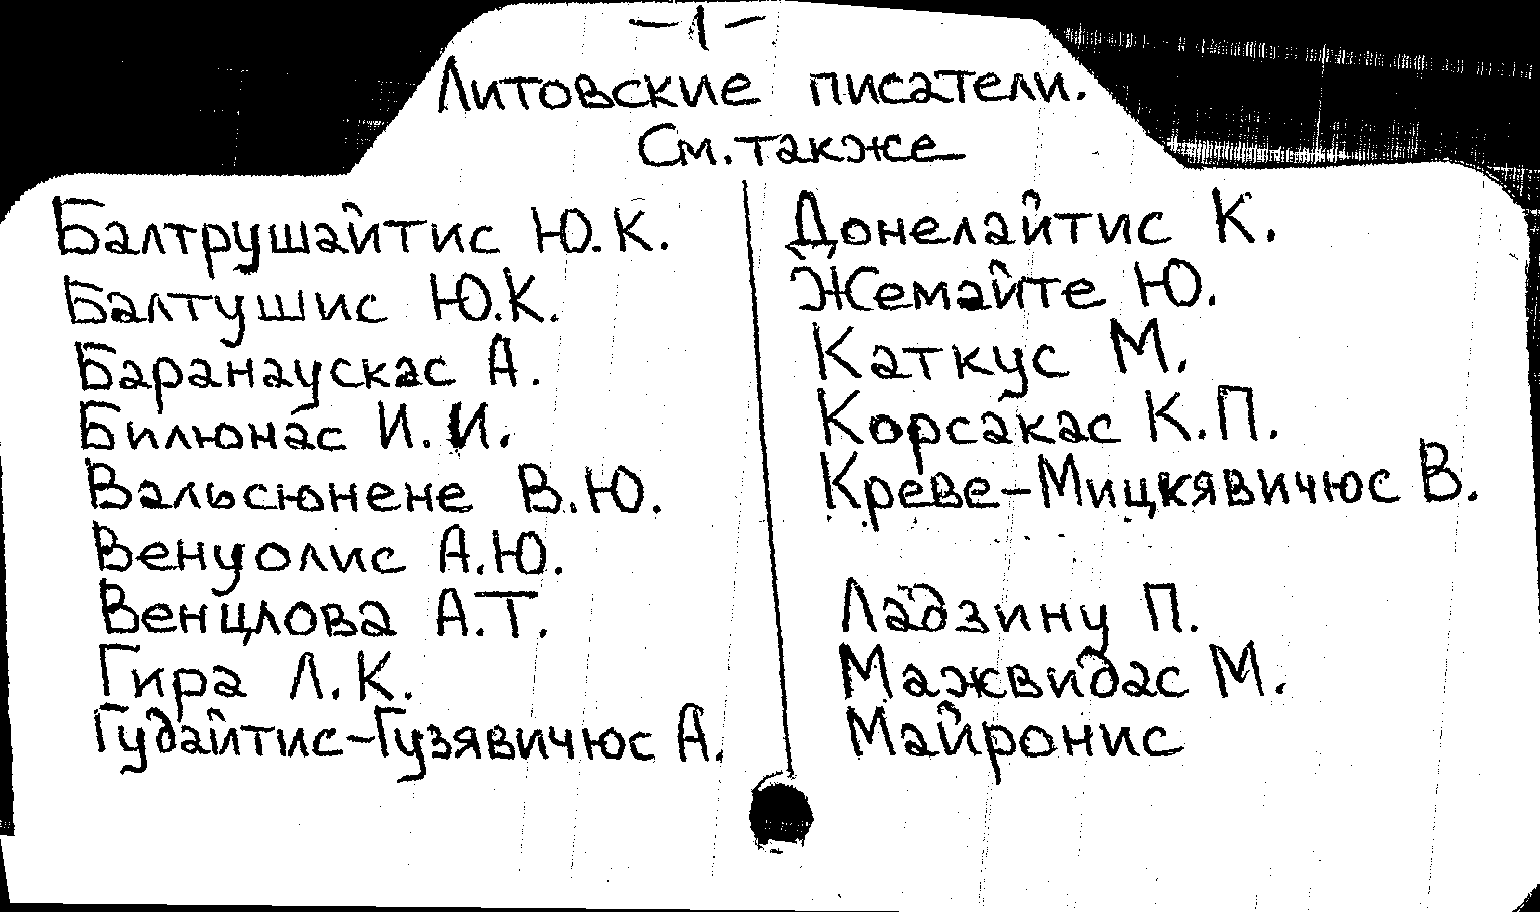 -1-
Литовские писатели.
См. также
Балтрушайтис Ю.К.
Балтушис Ю.К.
Баранаускас А.
Билюнас И.И.
Вальсюнене В.Ю.
Венуолис А.Ю.
Венцлова А.Т.
Гира Л.К.
Гудайтис-Гузявичюс А.
Донелайтис К.
Жемайте Ю.
Каткус М.
Корсакас К.П.
Креве-Мицкявичюс В.
Ладзину П.
Мажвидас М.
Майронис